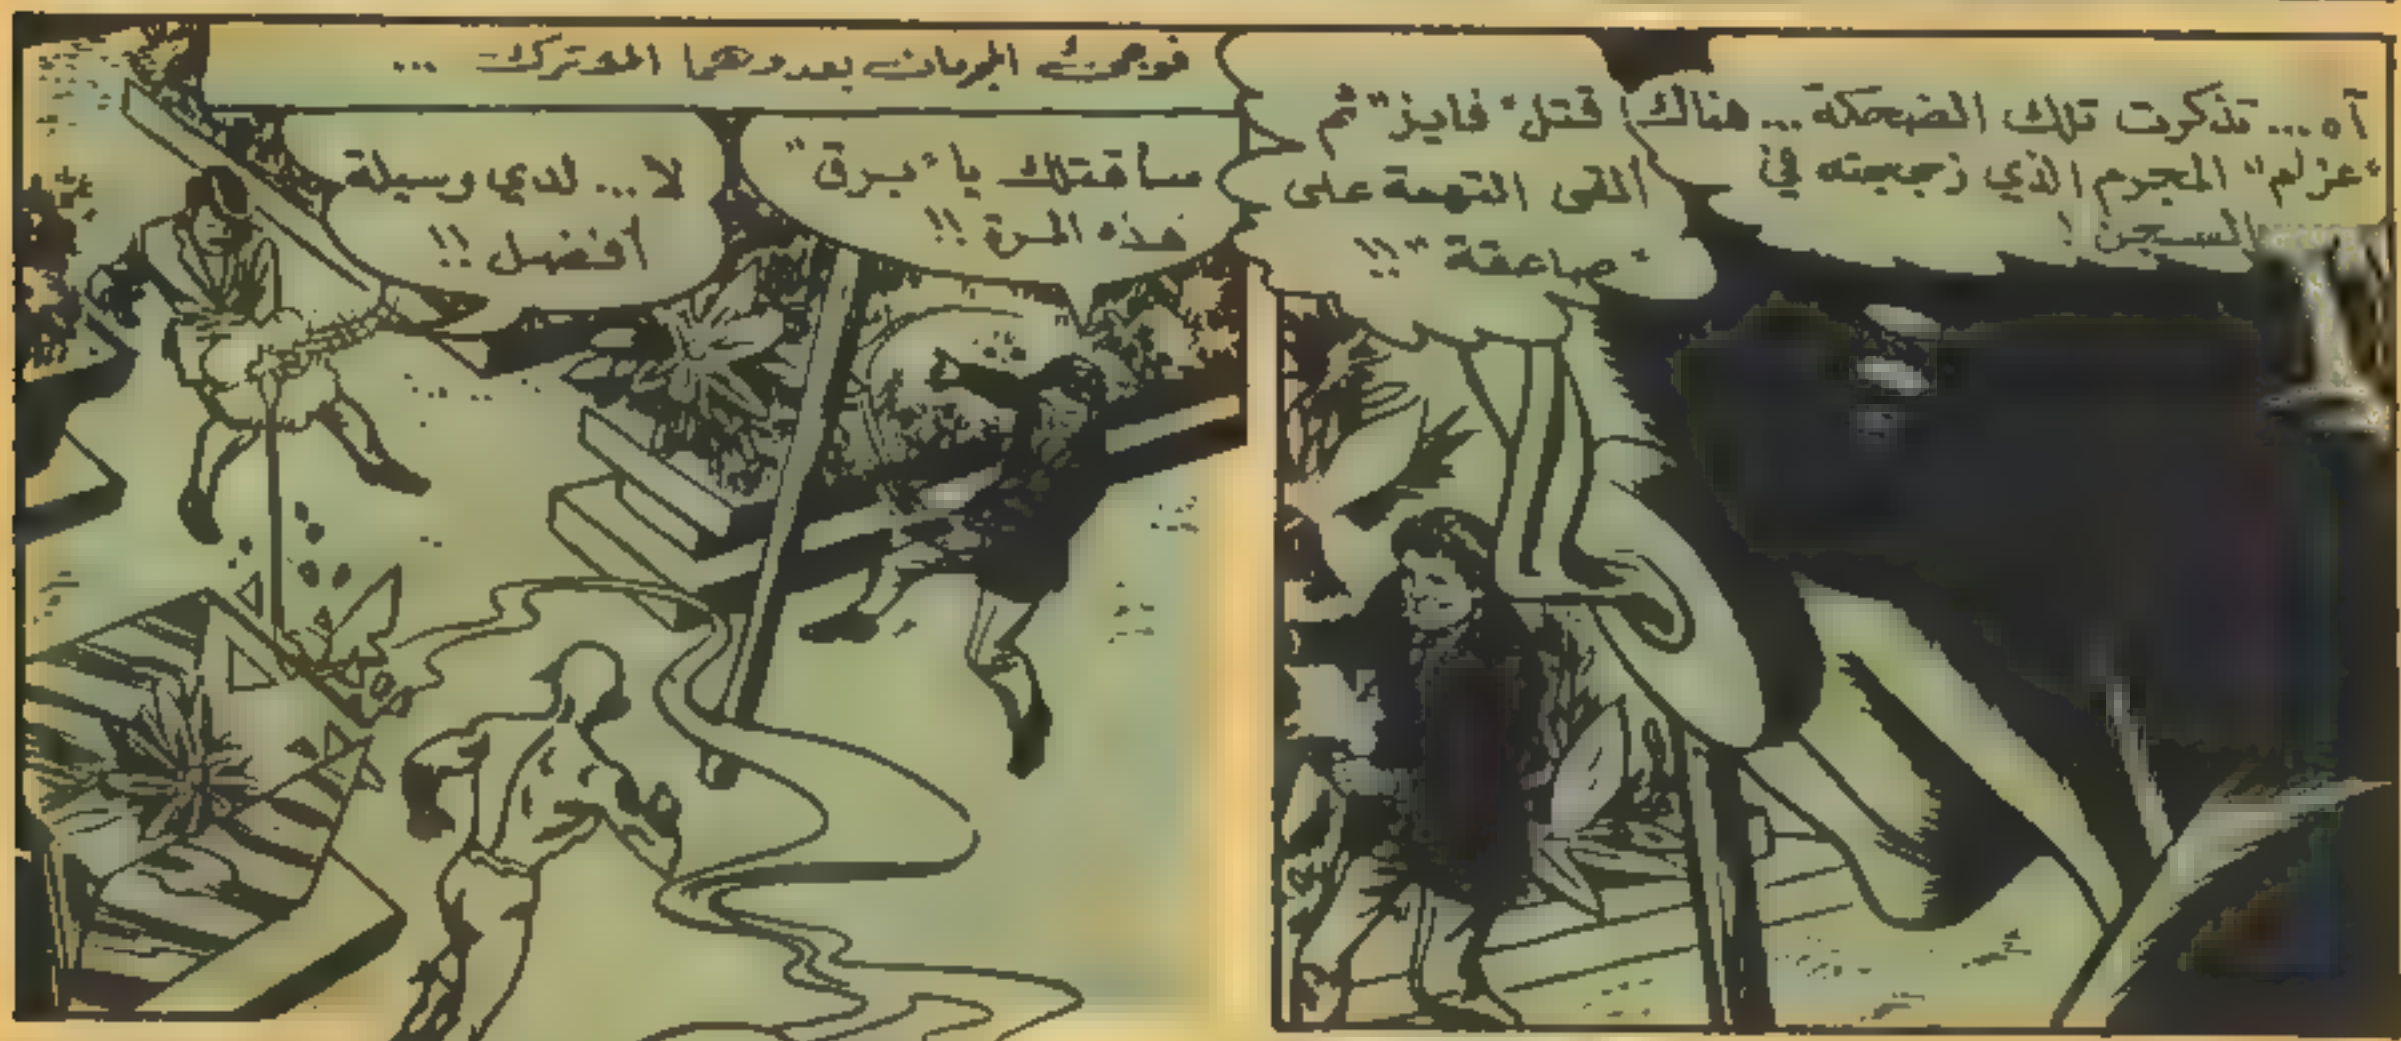 آه... تذكرت تلك الضحكة... هناك
"عزام" المجرم الذي زججته في
السجن !
قتل "فايز" ثم
ألقى التهمة على
"صاعقة" !!
فوجئ المجرمان بعدوهما المشترك ...
سأقتلك يا "برق"
هذه المرة !!
لا... لدي وسيلة
أفضل !!